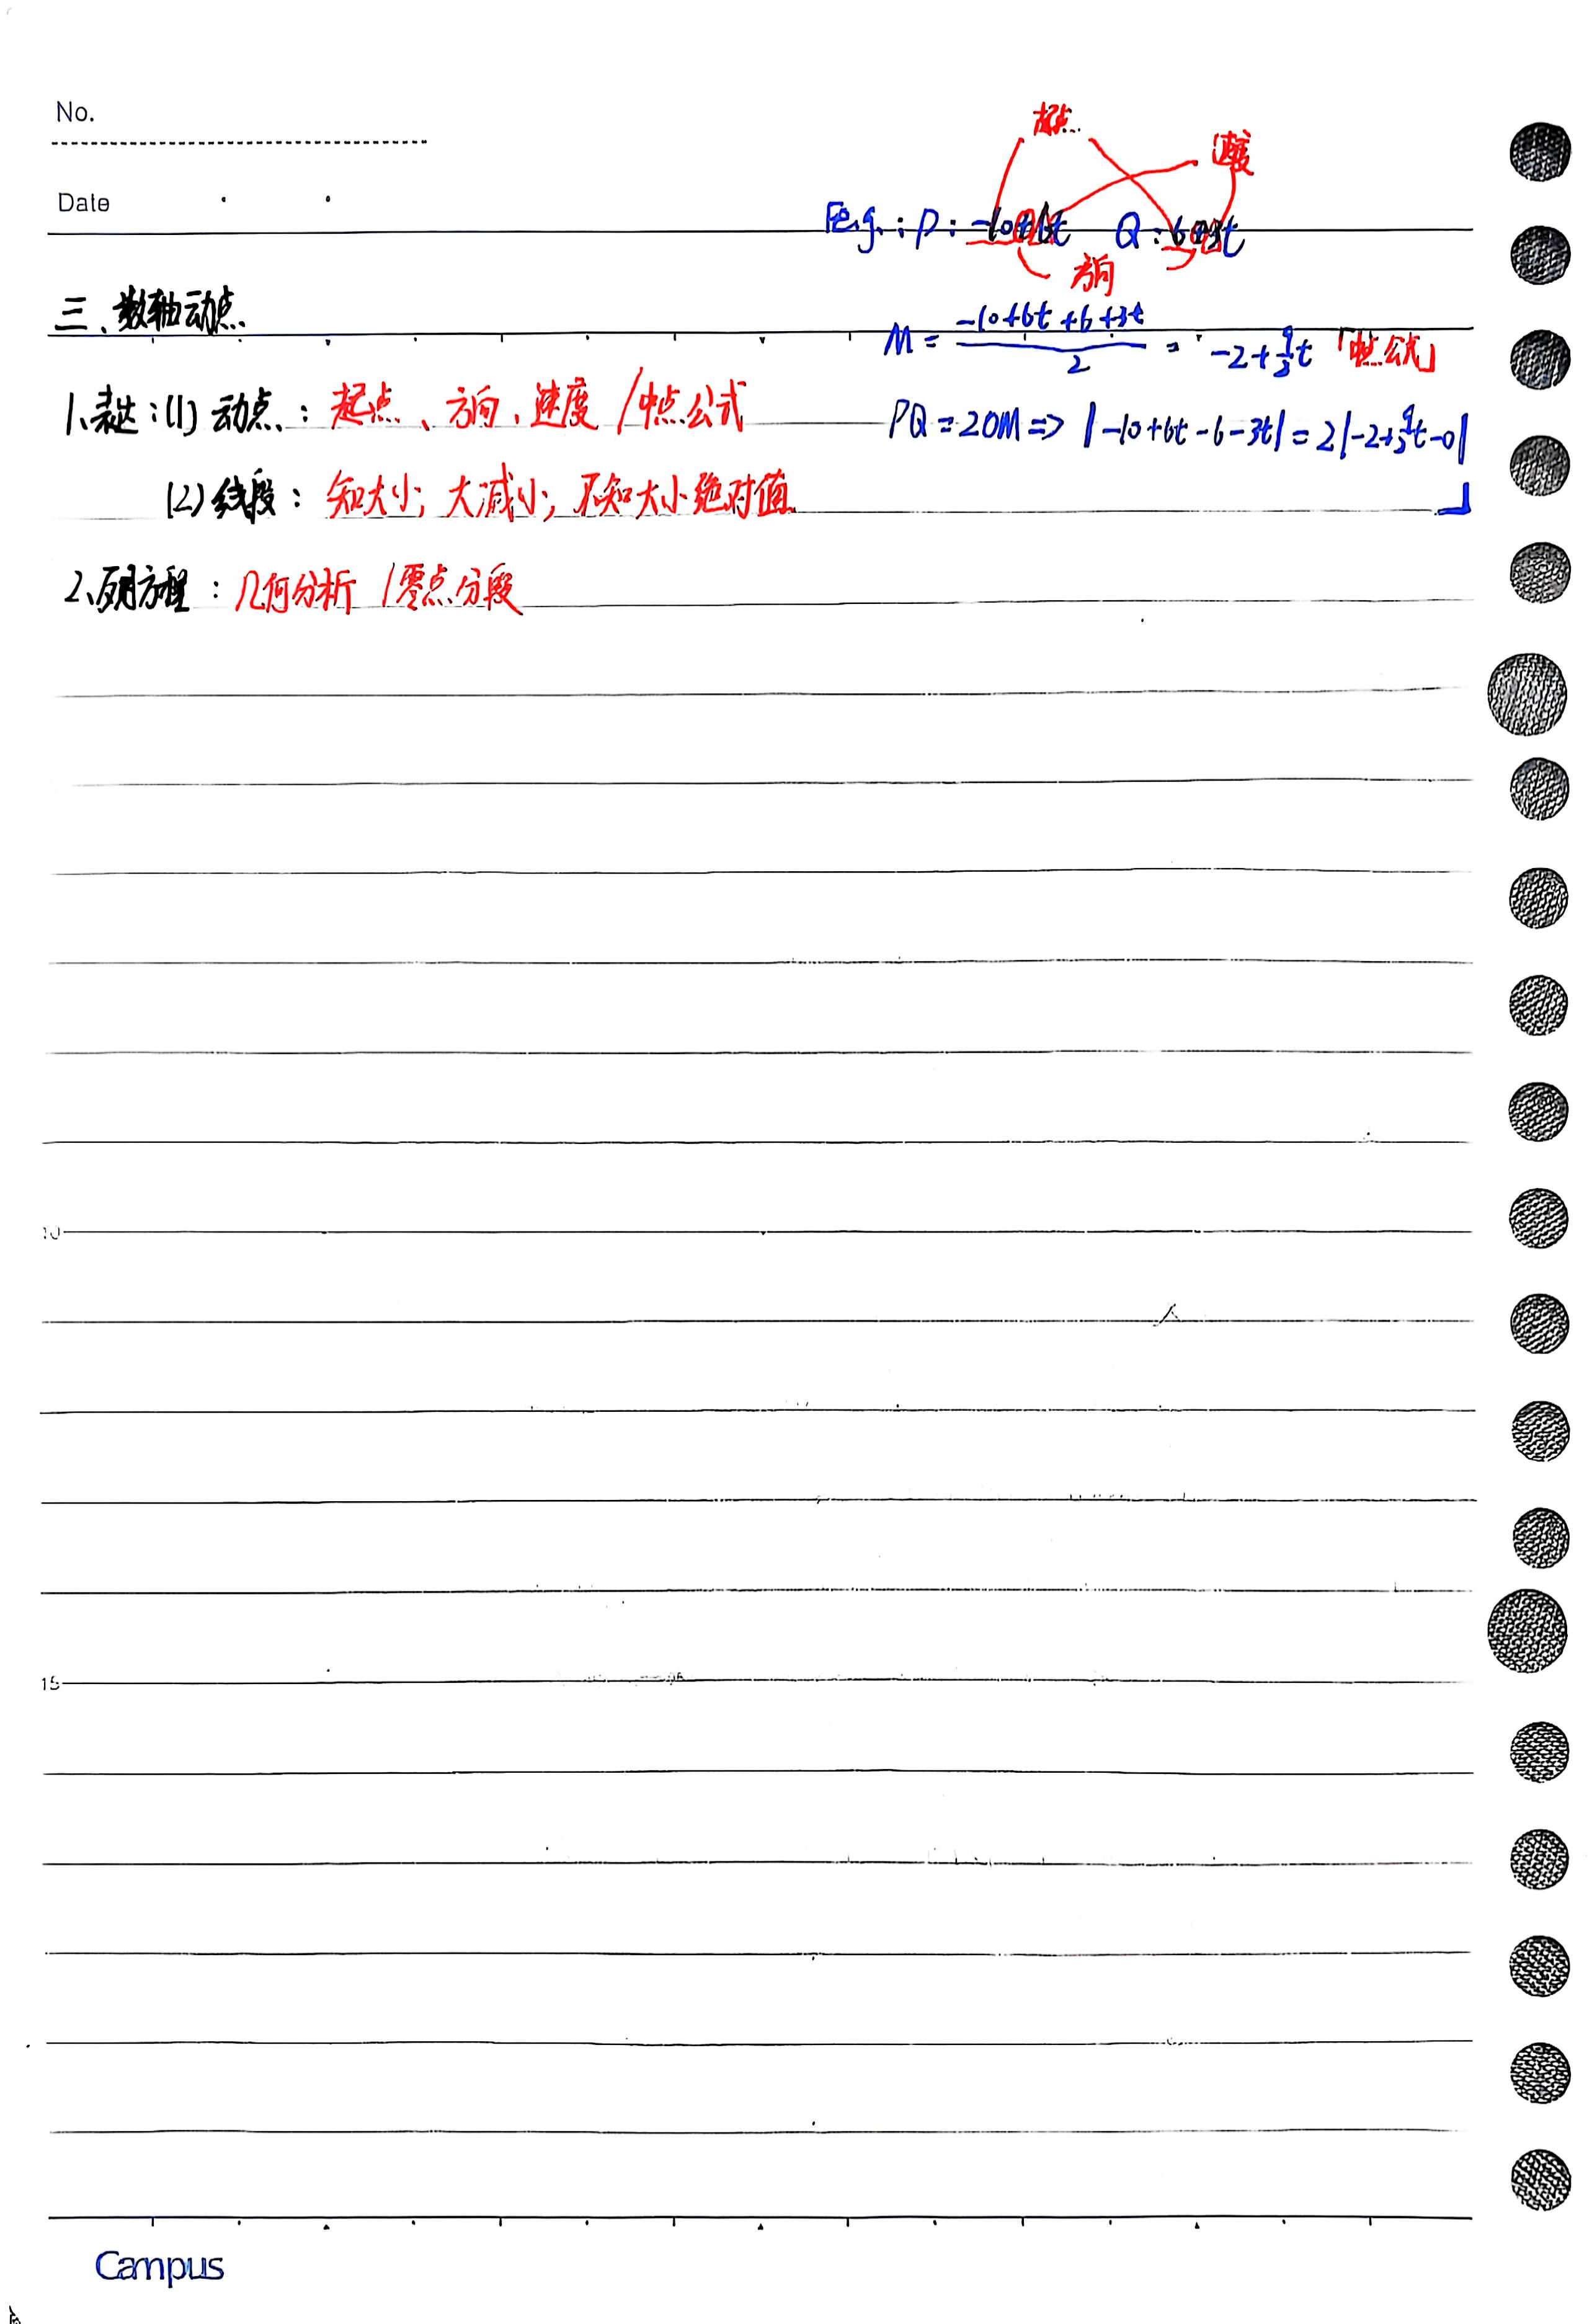 No.
Date
起点
速度
「e.g.：P：-10+6t Q：6+3t
方向
三、数轴动点
M = (-10+6t+6+3t)/2 = -2+9/2t 「中点公式」
1、表达：(1) 动点：起点、方向、速度 / 中点公式
PQ=2OM => |-10+6t-6-3t|=2|-2+9/2t-0|
(2) 线段：知大小；大减小；不知大小绝对值
」
2、列方程：几何分析 / 零点分段
10
15
Campus